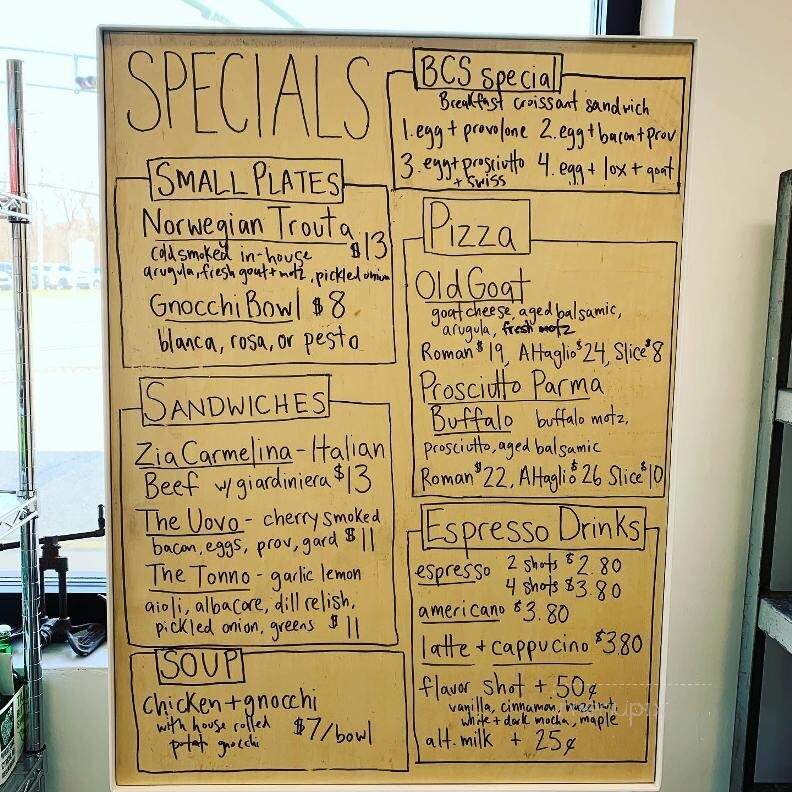 SPECIALS
SMALL PLATES
Norwegian Trouta $13
cold smoked in-house
arugula, fresh goat + motz, pickled onion
Gnocchi Bowl $8
blanca, rosa, or pesto
SANDWICHES
Zia Carmelina - Italian
Beef w/ giardiniera $13
The Uovo - cherry smoked
bacon, eggs, prov, gard $11
The Tonno - garlic lemon
aioli, albacore, dill relish,
pickled onion, greens $11
SOUP
chicken + gnocchi
with house rolled $7/bowl
potato gnocchi
BCS special
Breakfast croissant sandwich
1. egg + provolone 2. egg + bacon + prov
3. egg + prosciutto 4. egg + lox + goat
+ swiss
Pizza
Old Goat
goat cheese, aged balsamic,
arugula, fresh motz
Roman $19, Altaglio $24, Slice $8
Prosciutto Parma
Buffalo buffalo motz,
prosciutto, aged balsamic
Roman $22, Altaglio $26 Slice $10
Espresso Drinks
espresso 2 shots $2.80
4 shots $3.80
americano $3.80
latte + cappucino $3.80
flavor shot + 50¢
vanilla, cinnamon, hazelnut
white + dark mocha, maple
alt. milk + 25¢